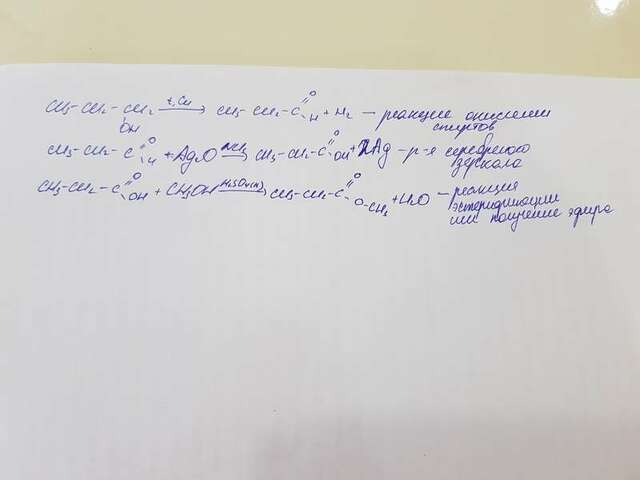 CH₃-CH₂-CH₂ t,Cu → CH₃-CH₂-C =O -H + H₂ — реакция окисления
OH спиртов
CH₃-CH₂-C =O -H + Ag₂O NH₃ → CH₃-CH₂-C =O OH + 2Ag - р-я серебряного
зеркала
CH₃-CH₂-C =O OH + CH₃OH H₂SO₄(к) → CH₃-CH₂-C =O O-CH₃ + H₂O — реакция
этерификации
или получение эфира